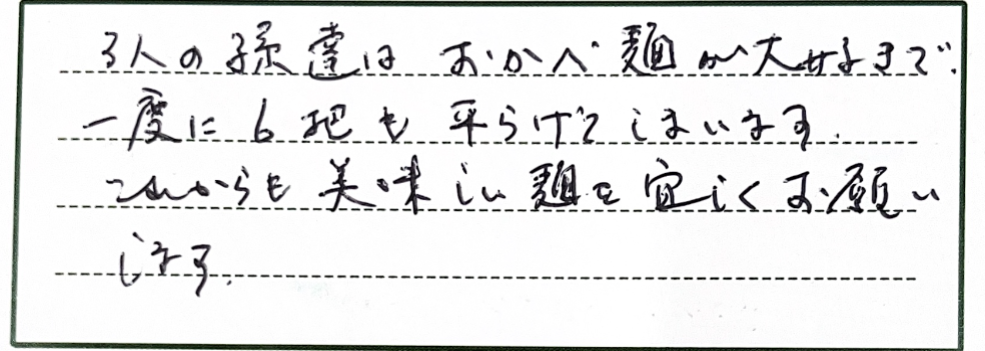 3人の孫達は おかべ麺が大好きで、
一度に6把も平らげてしまいます。
これからも美味しい麺を宜しくお願い
します。